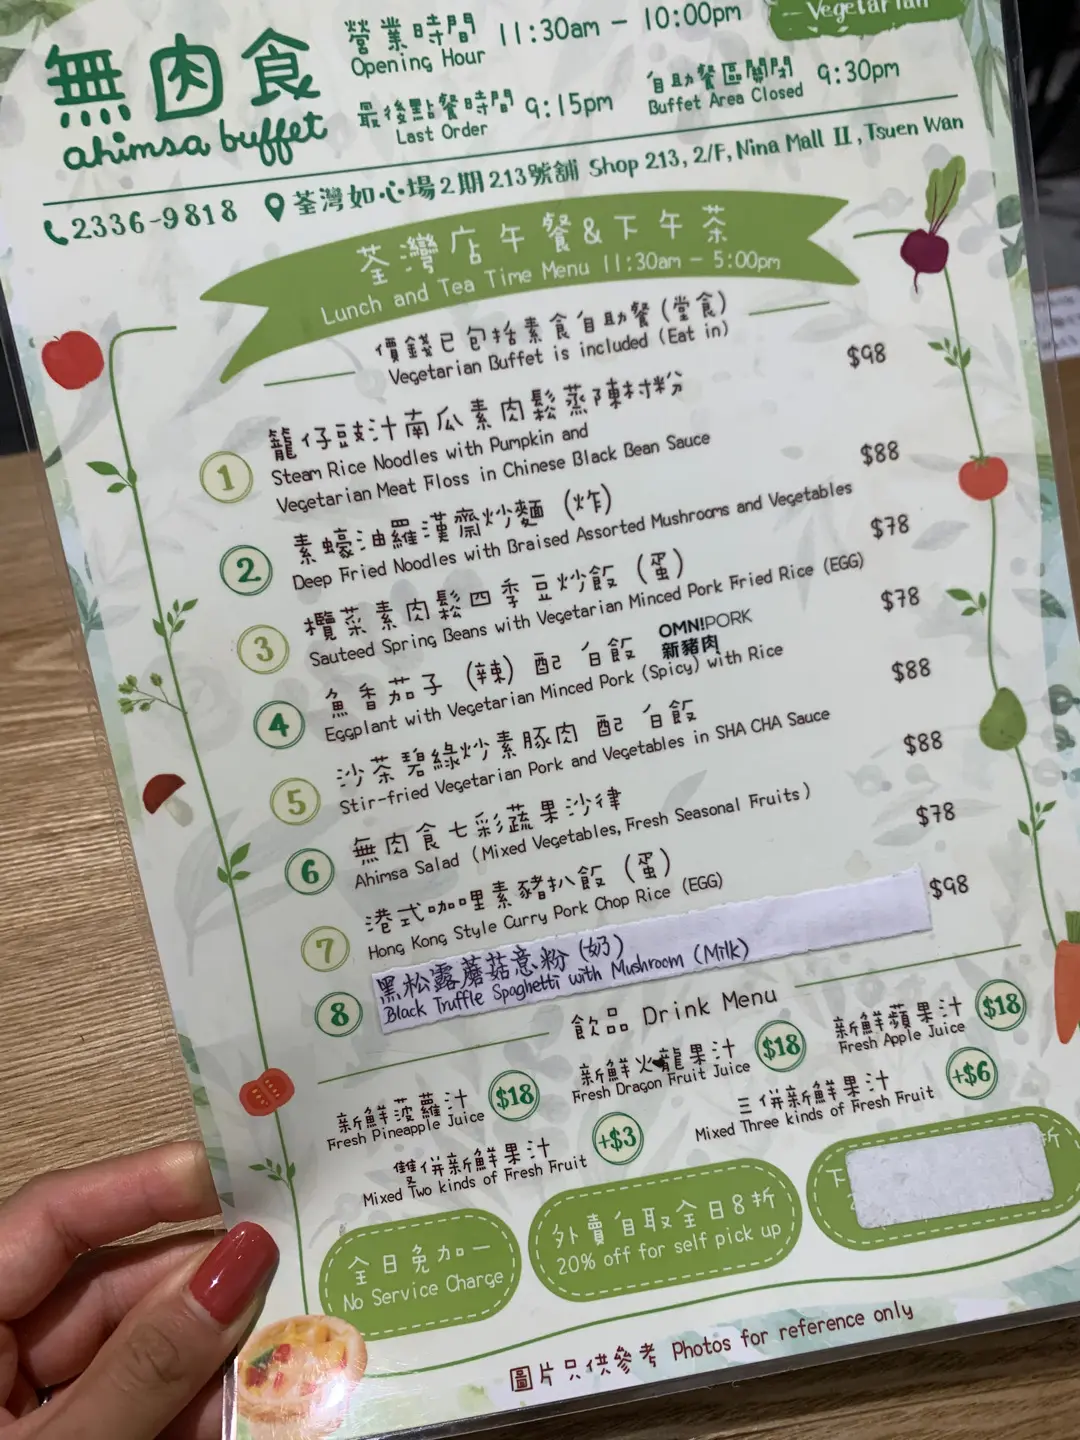 無肉食
ahimsa buffet
營業時間 11:30am - 10:00pm
Opening Hour
Vegetarian
最後點餐時間 9:15pm
Last Order
自助餐區關閉 9:30pm
Buffet Area Closed
2336-9818 荃灣如心場2期213號舖 Shop 213, 2/F, Nina Mall II, Tsuen Wan
荃灣店午餐&下午茶
Lunch and Tea Time Menu 11:30am - 5:00pm
價錢已包括素食自助餐(堂食)
Vegetarian Buffet is included (Eat in)
1 籠仔豉汁南瓜素肉鬆蒸陳村粉 $98
Steam Rice Noodles with Pumpkin and
Vegetarian Meat Floss in Chinese Black Bean Sauce
2 素蠔油羅漢齋炒麵 (炸) $88
Deep Fried Noodles with Braised Assorted Mushrooms and Vegetables
3 欖菜素肉鬆四季豆炒飯 (蛋) $78
Sauteed Spring Beans with Vegetarian Minced Pork Fried Rice (EGG)
4 魚香茄子 (辣) 配 白飯 OMN!PORK 新豬肉 $78
Eggplant with Vegetarian Minced Pork (Spicy) with Rice
5 沙茶碧綠炒素豚肉 配 白飯 $88
Stir-fried Vegetarian Pork and Vegetables in SHA CHA Sauce
6 無肉食七彩蔬果沙律 $88
Ahimsa Salad (Mixed Vegetables, Fresh Seasonal Fruits)
7 港式咖哩素豬扒飯 (蛋) $78
Hong Kong Style Curry Pork Chop Rice (EGG)
8 黑松露蘑菇意粉 (奶) $98
Black Truffle Spaghetti with Mushroom (Milk)
飲品 Drink Menu
新鮮菠蘿汁 $18
Fresh Pineapple Juice
新鮮火龍果汁 $18
Fresh Dragon Fruit Juice
新鮮蘋果汁 $18
Fresh Apple Juice
雙併新鮮果汁 +$3
Mixed Two kinds of Fresh Fruit
三併新鮮果汁 +$6
Mixed Three kinds of Fresh Fruit
全日免加一
No Service Charge
外賣自取全日8折
20% off for self pick up
下 折
圖片只供參考 Photos for reference only